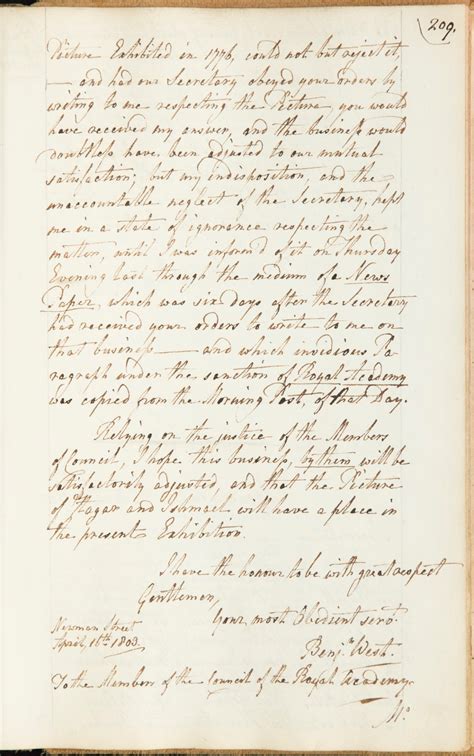 209.
Picture Exhibited in 1776, could not but reject it,
— and had our Secretary obeyed your orders by
writing to me respecting the Picture you would
have received my answer, and the business would
doubtless have, been adjusted to our mutual
satisfaction; but my indisposition, and the
unaccountable neglect of the Secretary, kept
me in a state of ignorance respecting the
matter, until I was inform'd of it on Thursday
Evening last through the medium of a News
Paper, which was six days after the Secretary
had received your orders to write to me on
that business — and which invidious Pa-
ragraph under the sanction of Royal Academy
was copied from the Morning Post, of that Day.
Relying on the justice of the Members
of Council, I hope this business, by them will be
satisfactorily adjusted, and that the Picture
of Hagar and Ishmael will have a place in
the present Exhibition.
I have the honour to be with great respect
Gentlemen,
Your most Obedient servt.
Newman Street
April 16th 1803.
Benjn. West.
To the Members of the Council of the Royal Academy.